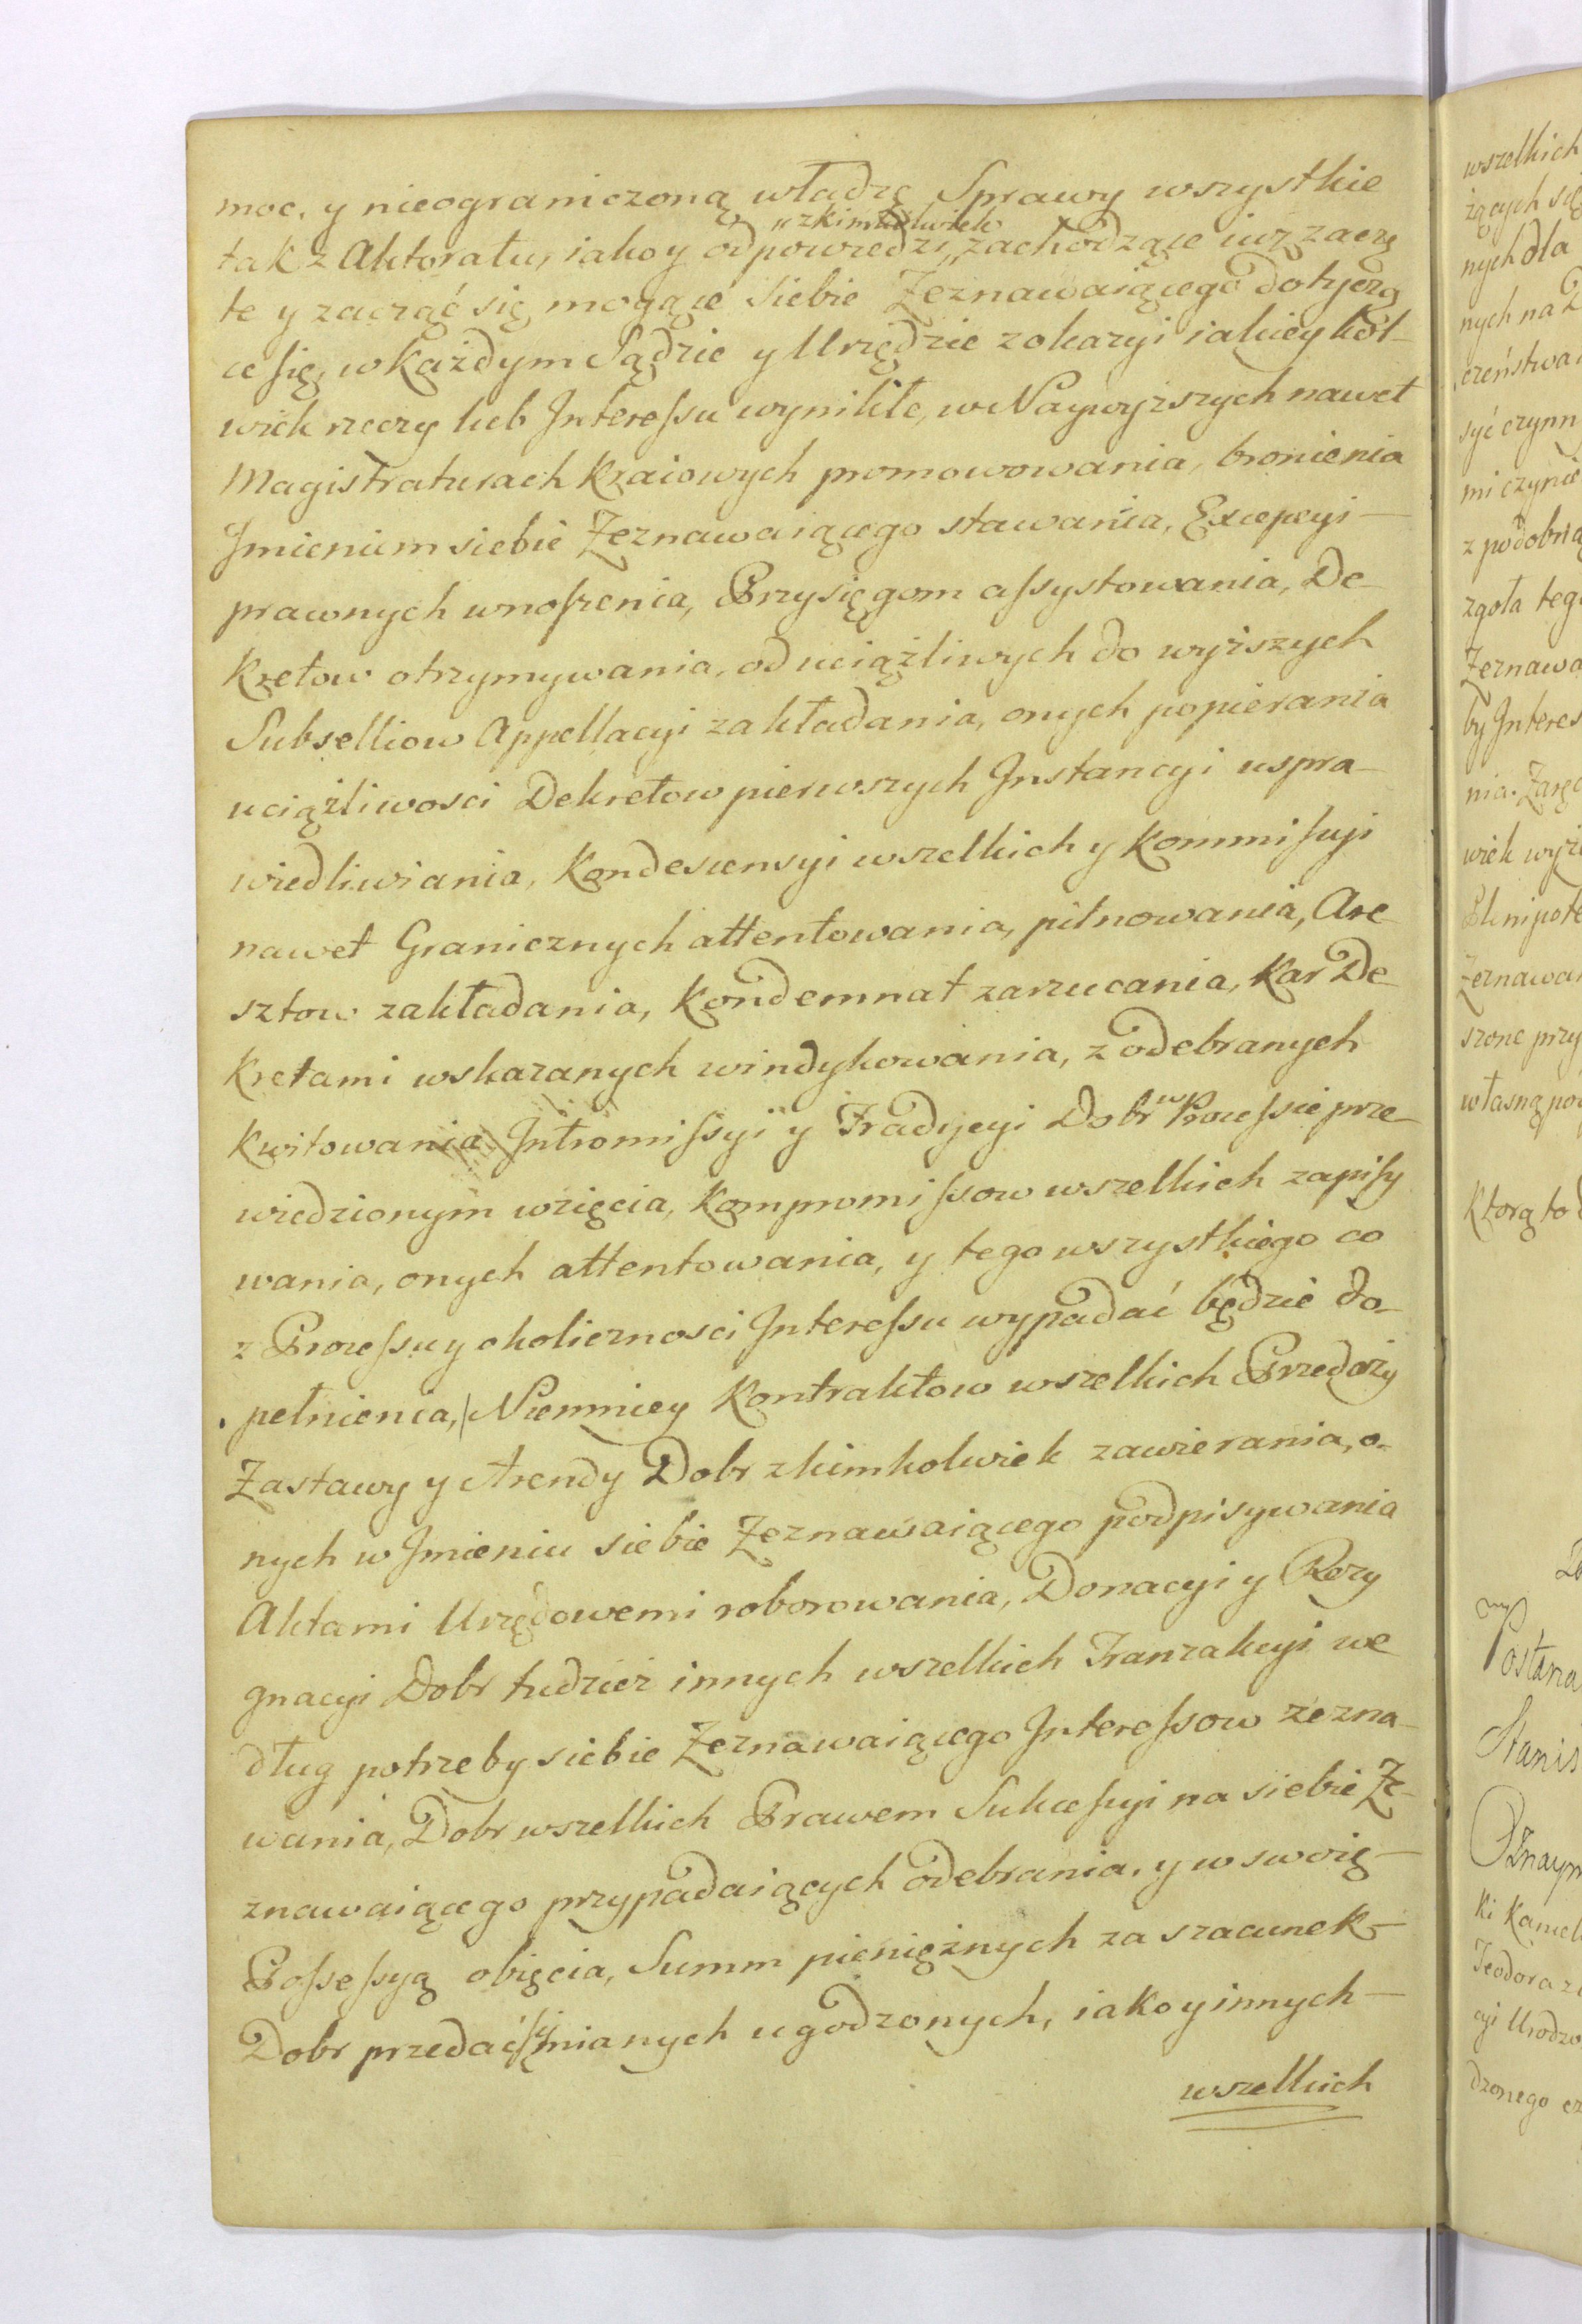 moc, y nieograniczoną władzę Sprawy wszystkie
tak z Aktoratu, iako y odpowiedzi „zkimkolwiek„ zachodzące iuż zaczę
te y zacząć się mogące siebie Zeznawaiącego dotycżą
ce się, w każdym Sądzie y Urzędzie z okazyi iakiey kol-
wiek rzeczy lub Interessu wynikłe, w Naywyższych nawet
Magistraturach Kraiowych promowowania, bronienia
Imieniem siebie Zeznawaiącego stawania, Excepcyi –
prawnych wnoszenia, Przysięgom assystowania, De
kretow otrzymywania, od uciążliwych do wyższych
Subselliow Appellacyi zakładania, onych popierania
uciążliwosci Dekretow pierwszych Instancyi uspra-
wiedliwiania, Kondescensyi wszelkich y Kommissyi
nawet Granicznych attentowania, pilnowania, Are
sztow zakładania, Kondemnat zarzucania, Kar De
kretami wskazanych windykowania, z odebranych
kwitowania Intromissyi y Tradycyi Dobr w Processie prze-
wiedzionym wzięcia, Kompromissow wszelkich zapisy
wania, onych attentowania, y tego wszystkiego co
z Processu y okolicznosci Interessu wypadać będzie do-
pełnienia, Niemniey Kontraktow wszelkich Przedaży
Zastawy y Arendy Dobr zkimkolwiek zawierania, o-
nych w Imieniu siebie Zeznawaiącego podpisywania
Aktami Urzędowemi roborowania, Donacyi y Rezy
gnacyi Dobr tudzież innych wszelkich Tranzakcyi we
dług potrzeby siebie Zeznawaiącego Interessow zezna-
wania, Dobr wszelkich Prawem Sukcessyi na siebie Ze-
znawaiącego przypadaiących odebrania, y w swoię –
Possessyą obięcia, Summ pieniężnych za szacunek –
Dobr przedać się mianych ugodzonych, iako y innych –
wszelkich
wszelkich
nych dla
nych na
syć czynn
mi czynie
z podobną
zgoła teg
Zeznawa
by Interes
nia. Zarę
wiek wyż
Plenipote
Zeznawa
szone przy
własną
Ktorą to
Postana
Stanis
Oznaym
ki Kamel
Teodora z
cyi Urodzo
dzonego cz